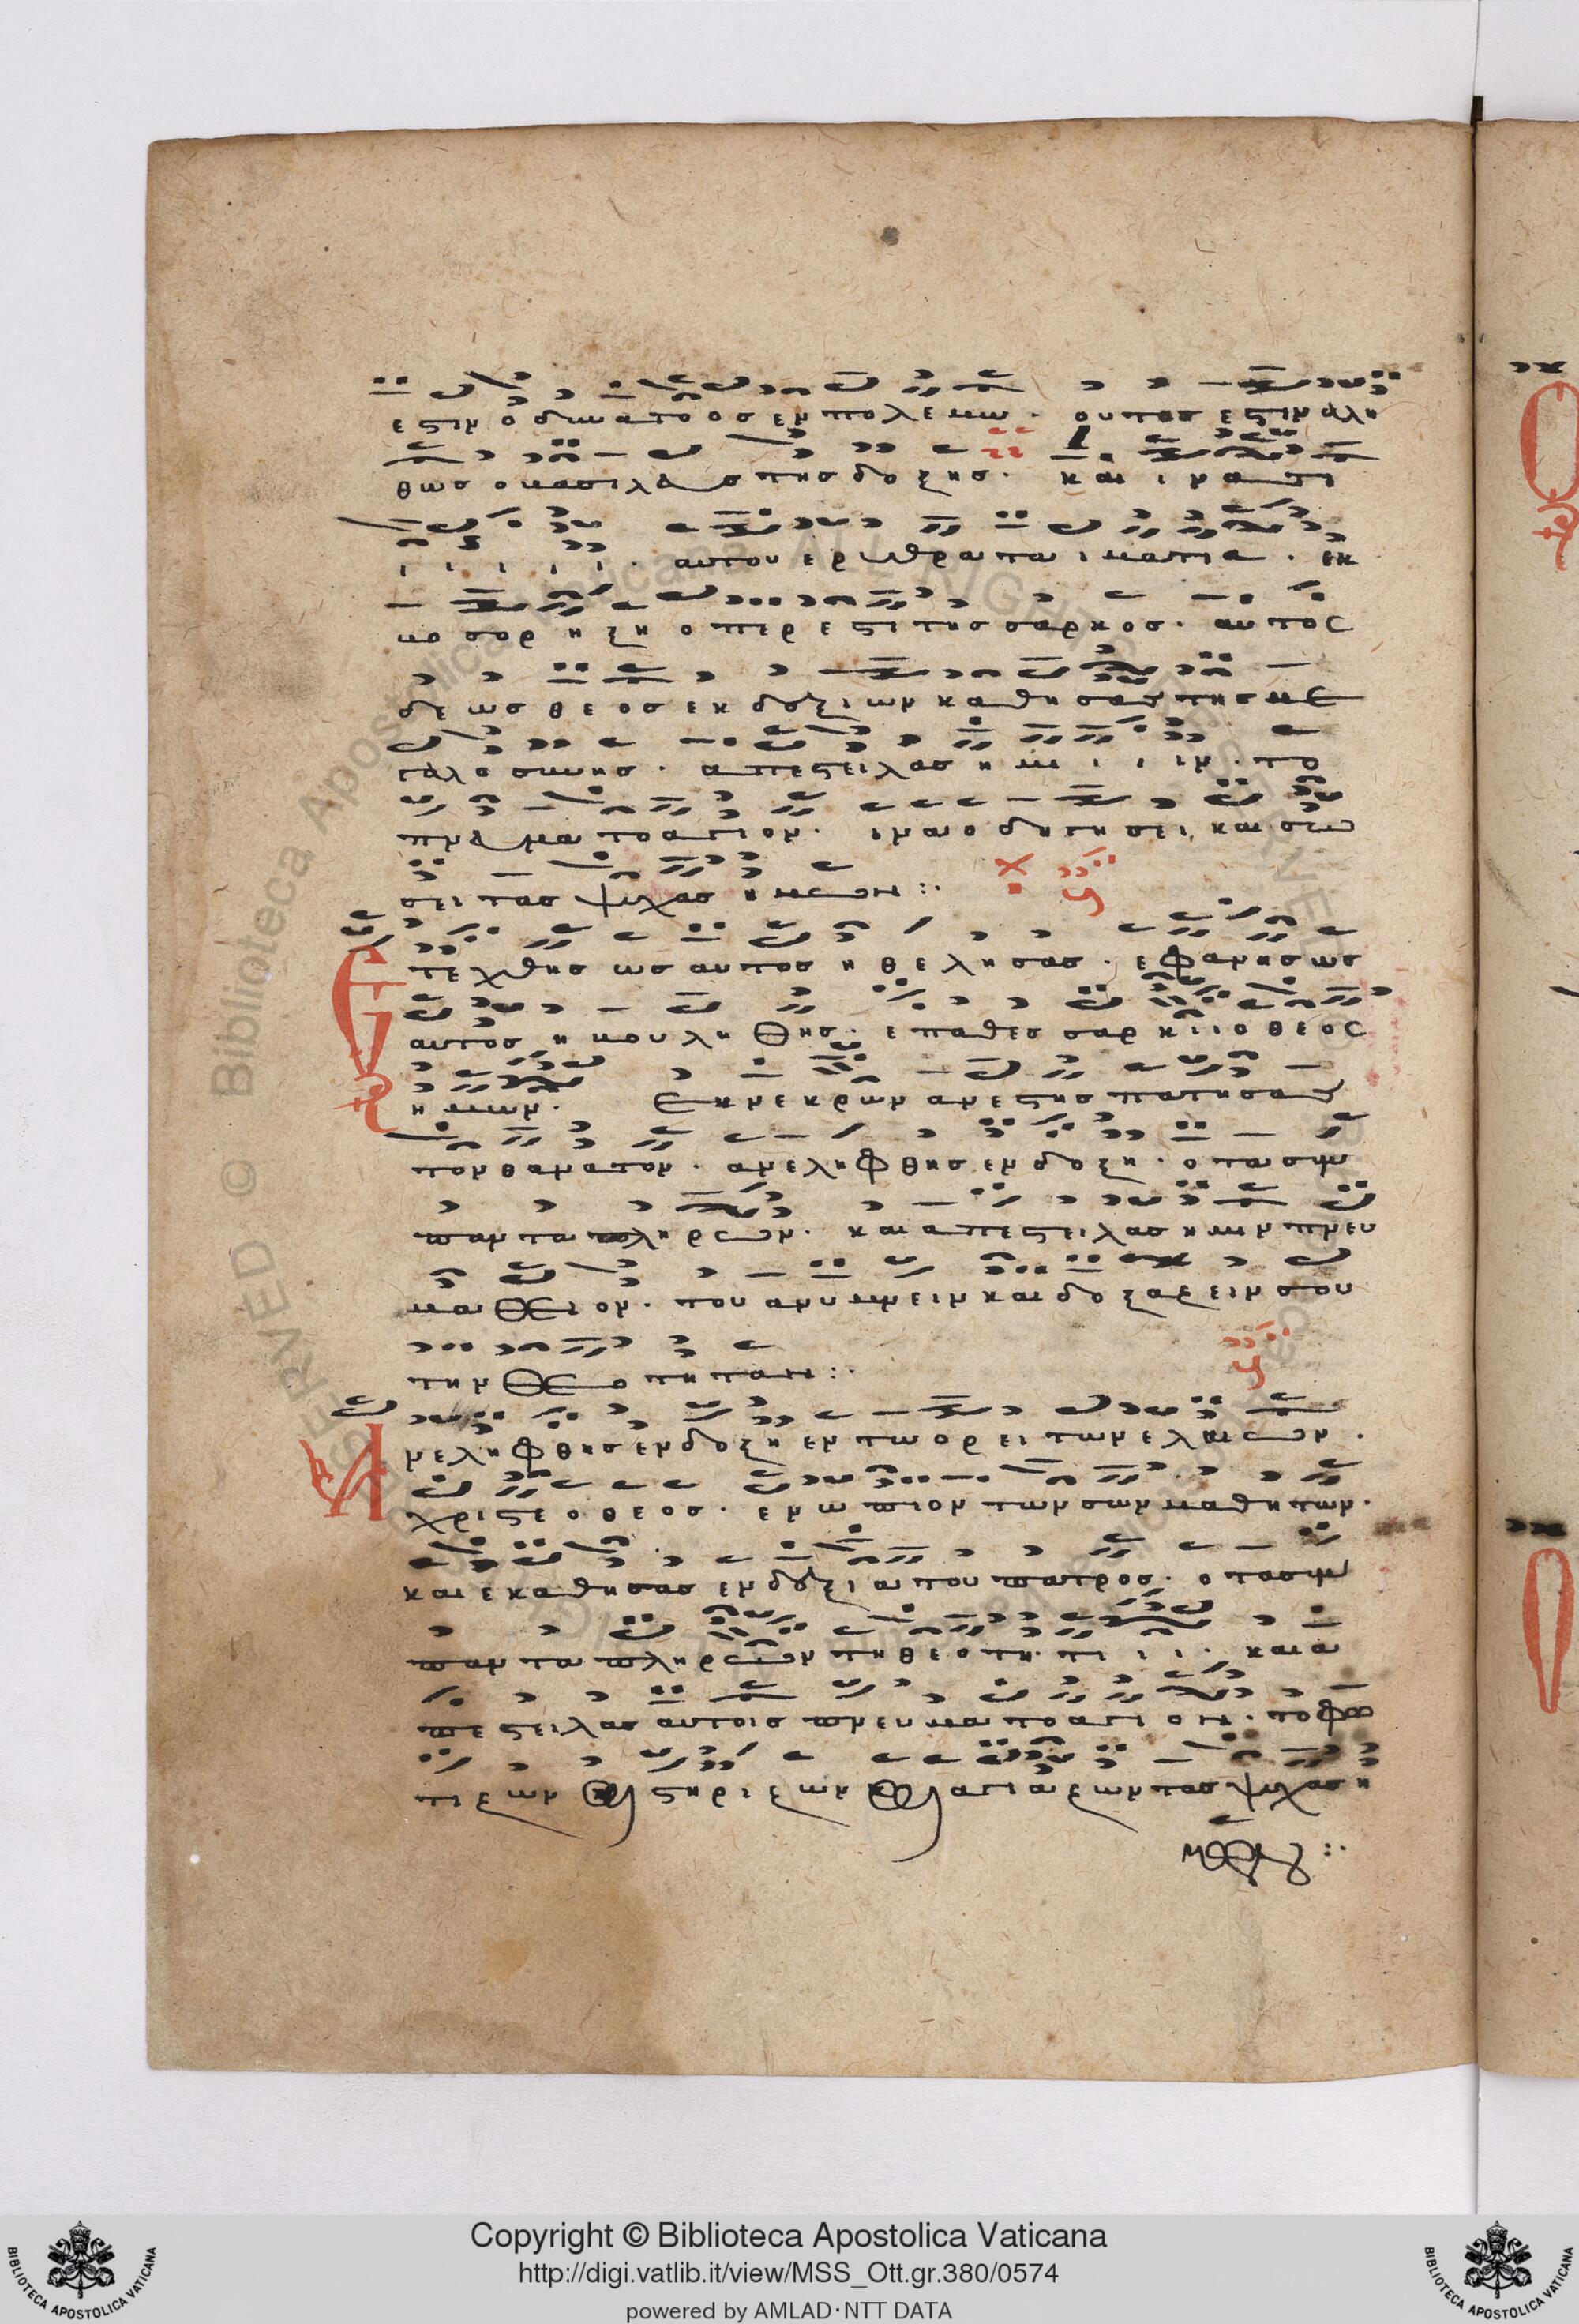 εστιν ο δυνατοοσ εν πολεμω · ουτοσ εστιν αλη
θωσ ο βασιλευσ τησ δοξησ · και ινατι
ι ι ι ι ι · αυτου ερυθρα τα ιματια · εκ
βοσορ ηξη οπερ εστι τησ σαρκοσ · αυτος
δε ωσ θεοσ εκ δεξιων καθησασ τησ με
γαλοσυνησ · απεστειλασ ημι ι ι ιν · το
πνευμα το αγιον · ινα οδηγηση και σω
σει τασ ψυχασ ημων :·
Ετεχθησ ωσ αυτοσ ηθελησασ · εφανησ ωσ
αυτοσ ηβουληθησ · επαθεσ σαρκι ι ο θεος
ημων · Εκ νεκρων ανεστησ πατησασ
τον θανατον · ανεληφθησ εν δοξη · ο τα συμ
παντα πληρων · και απεστειλασ ημιν πνευ
μα θειον · του ανυμνειν και δοξαζειν σου
την θεοτητα :·
Ανεληφθησ εν δοξη εν τω ορει των ελαιων ·
χριστε ο θεοσ · ενωπιον των σων μαθητων ·
και εκαθησασ εν δεξια του πατροσ · ο τα συμ
παντα πληρων τη θεοτητι ι ι · και α
πεστειλασ αυτοισ πνευμα το αγιον · το φω
τιζων και στηριζων και αγιαζων τασ ψυχασ η
μων :·
Copyright © Biblioteca Apostolica Vaticana
http://digi.vatlib.it/view/MSS_Ott.gr.380/0574
powered by AMLAD·NTT DATA